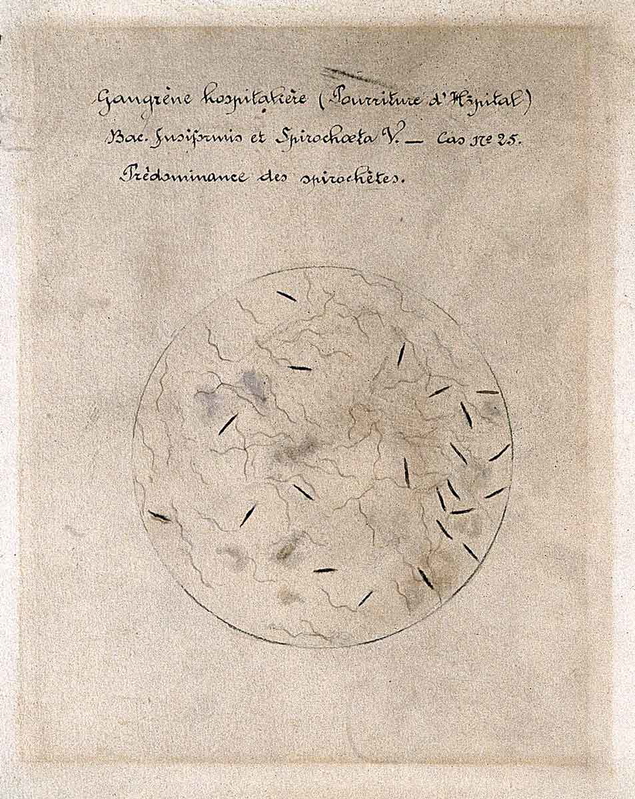 Gangrène hospitalière (Pourriture d'Hôpital)
Bac. fusiformis et Spirochœta V. — Cas Nº 25.
Prédominance des spirochètes.